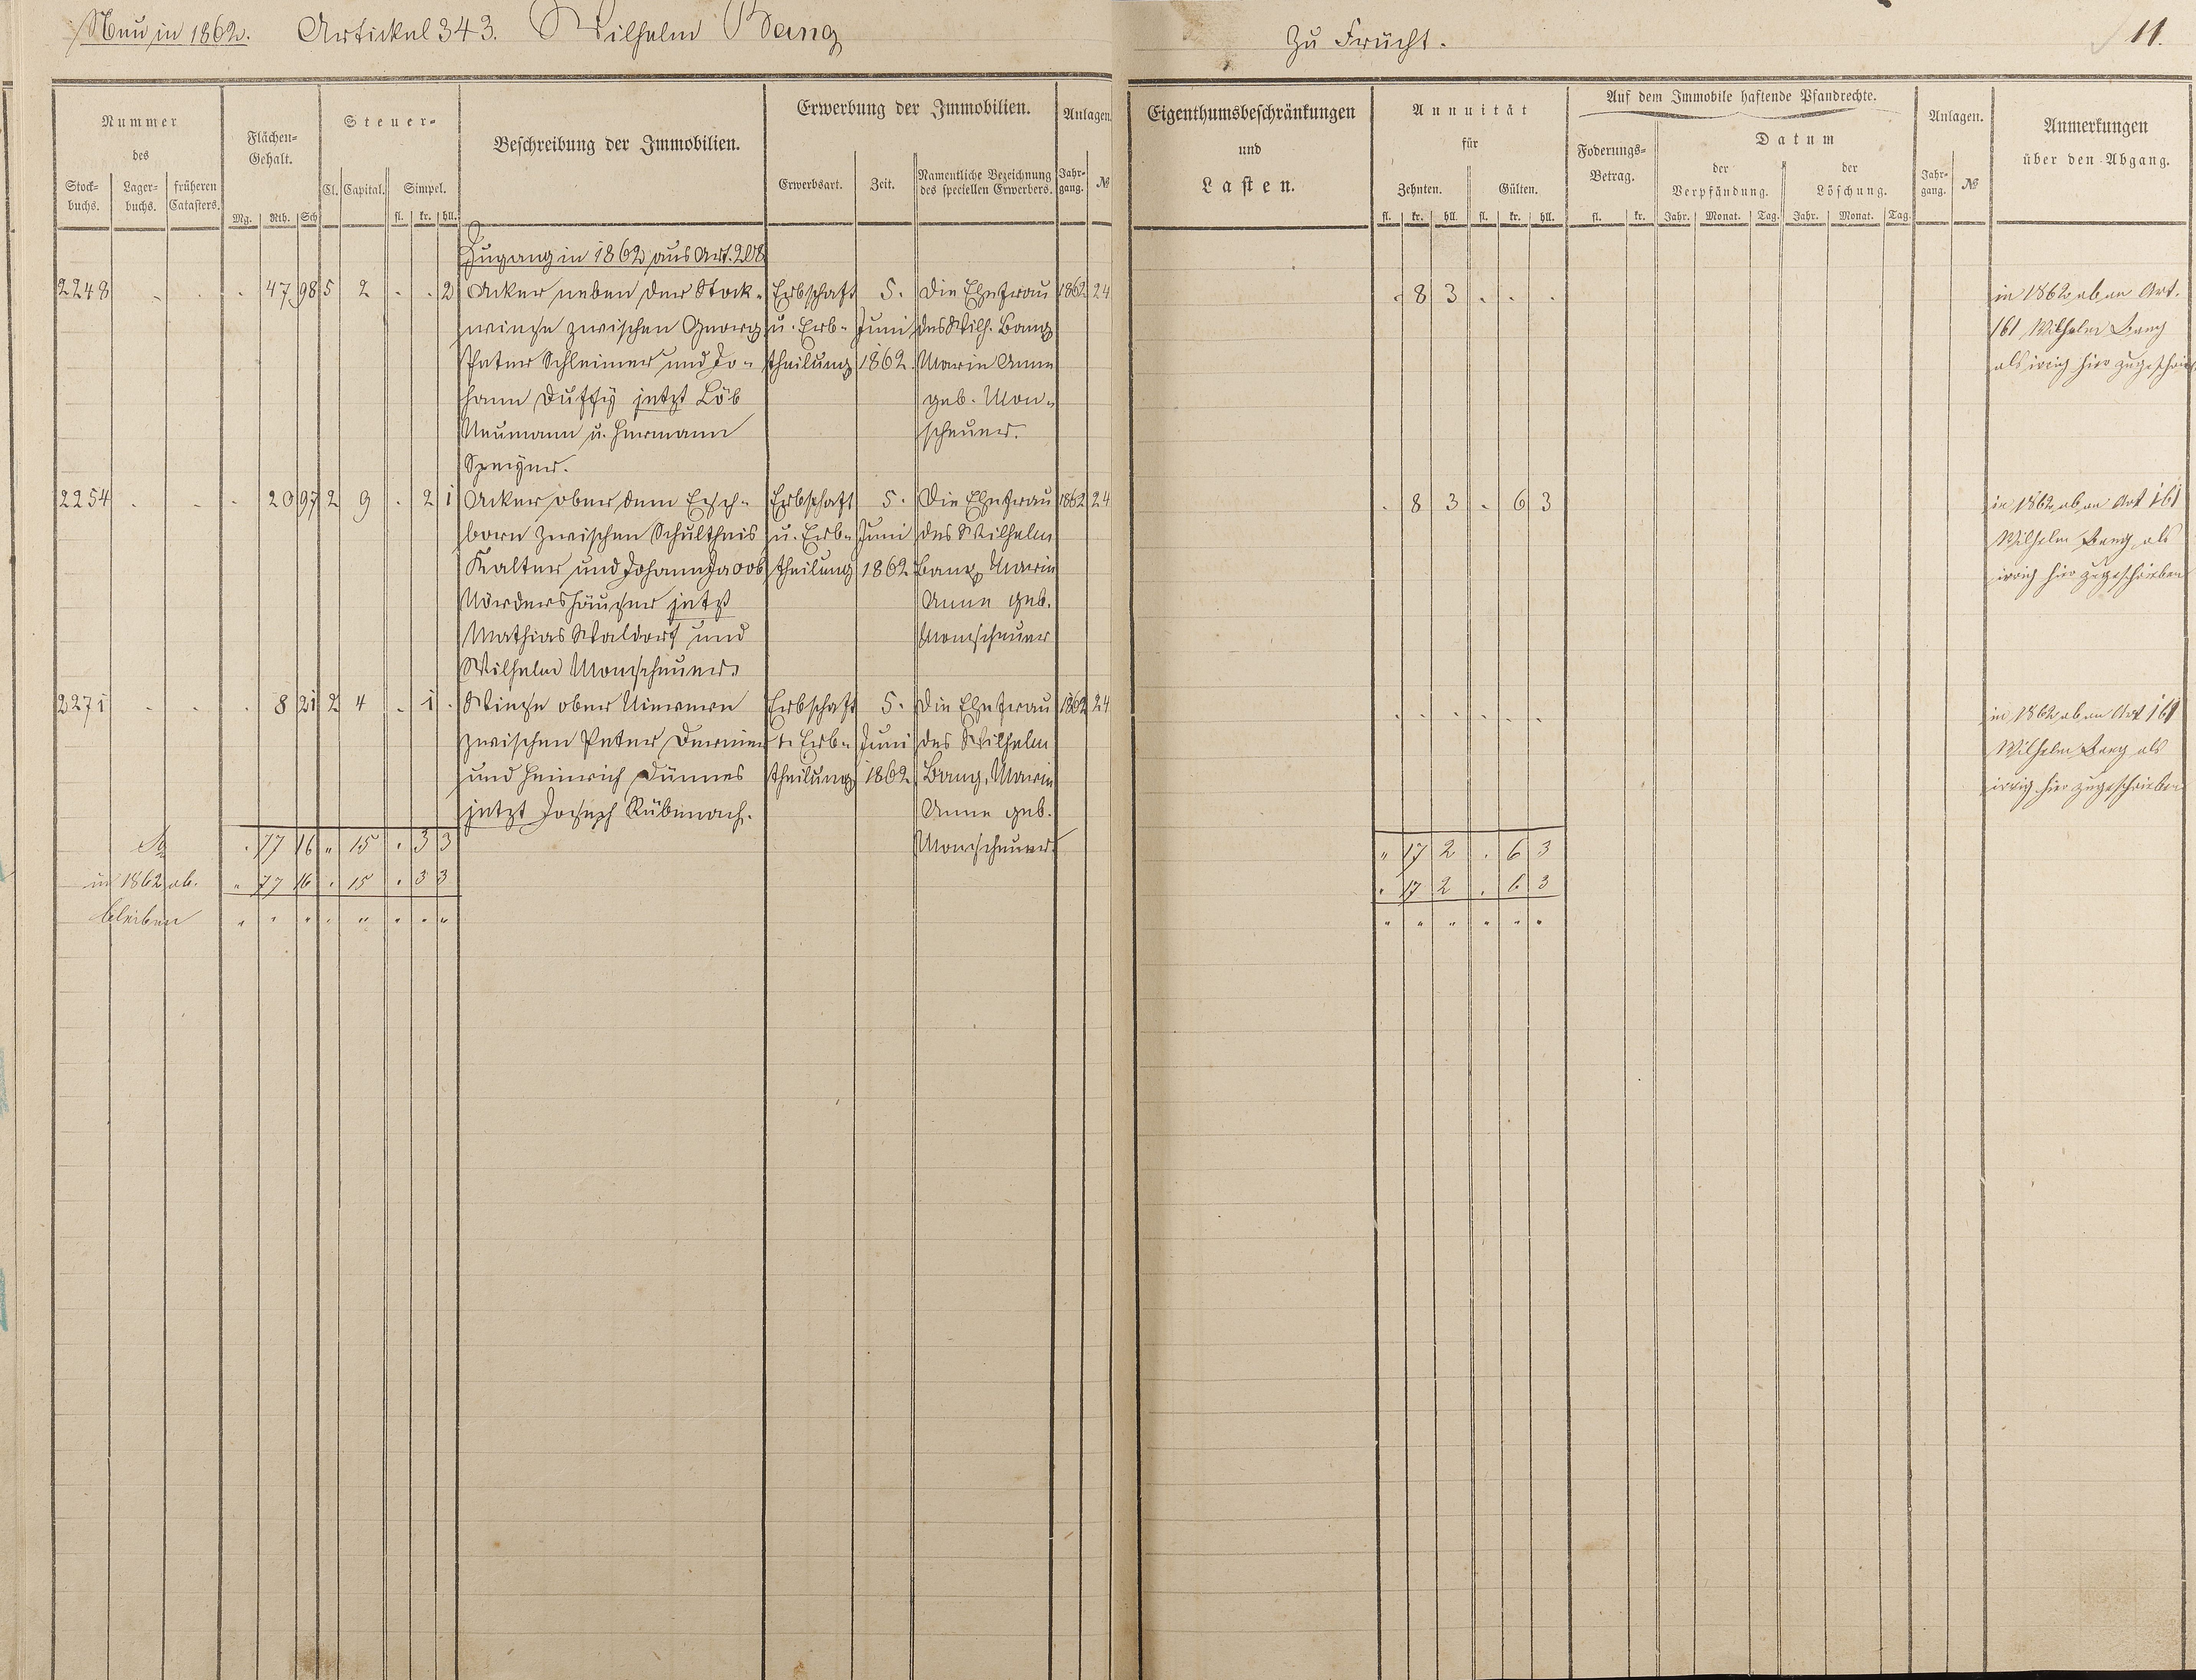 Neu in 1862. Artickel 343. Wilhelm Bang
Zu Frücht. 11.
Nummer des
Stockbuchs. Lagerbuchs. früheren Catasters.
Flächen-Gehalt.
Mg. Rth. Sch
Steuer-
Cl. Capital. Simpel.
fl. kr. hll.
Beschreibung der Immobilien.
Erwerbung der Immobilien.
Erwerbsart. Zeit. Namentliche Bezeichnung des speciellen Erwerbers.
Anlagen.
Jahrgang. №
Eigenthumsbeschränkungen
und
Lasten.
Annuität
für
Zehnten. Gülten.
fl. kr. hll. fl. kr. hll.
Auf dem Immobile haftende Pfandrechte.
Foderungs-Betrag.
fl. kr.
Datum
der Verpfändung. der Löschung.
Jahr. Monat. Tag. Jahr. Monat. Tag.
Anlagen.
Jahrgang. №
Anmerkungen
über den Abgang.
Zugang in 1862 aus Art. 208
2248 - . . 47 98 5 2 . . 2 Acker neben der Stock- Erbschaft 5. Die Ehefrau 1862 24 . 8 3 . . . in 1862 ab an Art.
wiese zwischen Georg u. Erb- Juni des Wilh. Bang 161 Wilhelm Bang
Peter Schleimer und Jo- theilung 1862. Marie Anne als irrig hier zugeschrieb
hann Duffÿ jetzt Löb geb. Mon-
Neumann u. Hermann scheuer.
Speÿer.
2254 . - - 20 97 2 9 . 2 1 Acker ober dem Esch- Erbschaft 5. Die Ehefrau 1862 24 . 8 3 . 6 3 in 1862 ab an Art 161
born zwischen Schultheis u. Erb- Juni des Wilhelm Wilhelm Bang als
Kalter und Johann Jacob theilung 1862 Bang Marie irrig hier zugeschrieben
Nördershäuser jetzt Anne geb.
Mathias Waldorf und Monscheuer
Wilhelm Monscheuer.
2271 - - . 8 21 2 4 . 1 . Wiese ober Nievern Erbschaft 5. Die Ehefrau 1862 24 . . . . . . in 1862 ab an Art 161
zwischen Peter u. Erb- Juni des Wilhelm Wilhelm Bang als
und Heinrich Dünnes theilung 1862 Bang, Marie irrig hier zugeschrieben
jetzt Joseph Rübenach. Anne geb.
. 77 16 " 15 . 3 3 Monscheuer. " 17 2 . 6 3
in 1862 ab. " 77 16 . 15 . 3 3 . 17 2 . 6 3
bleiben " " " " " " " " " " " " " "